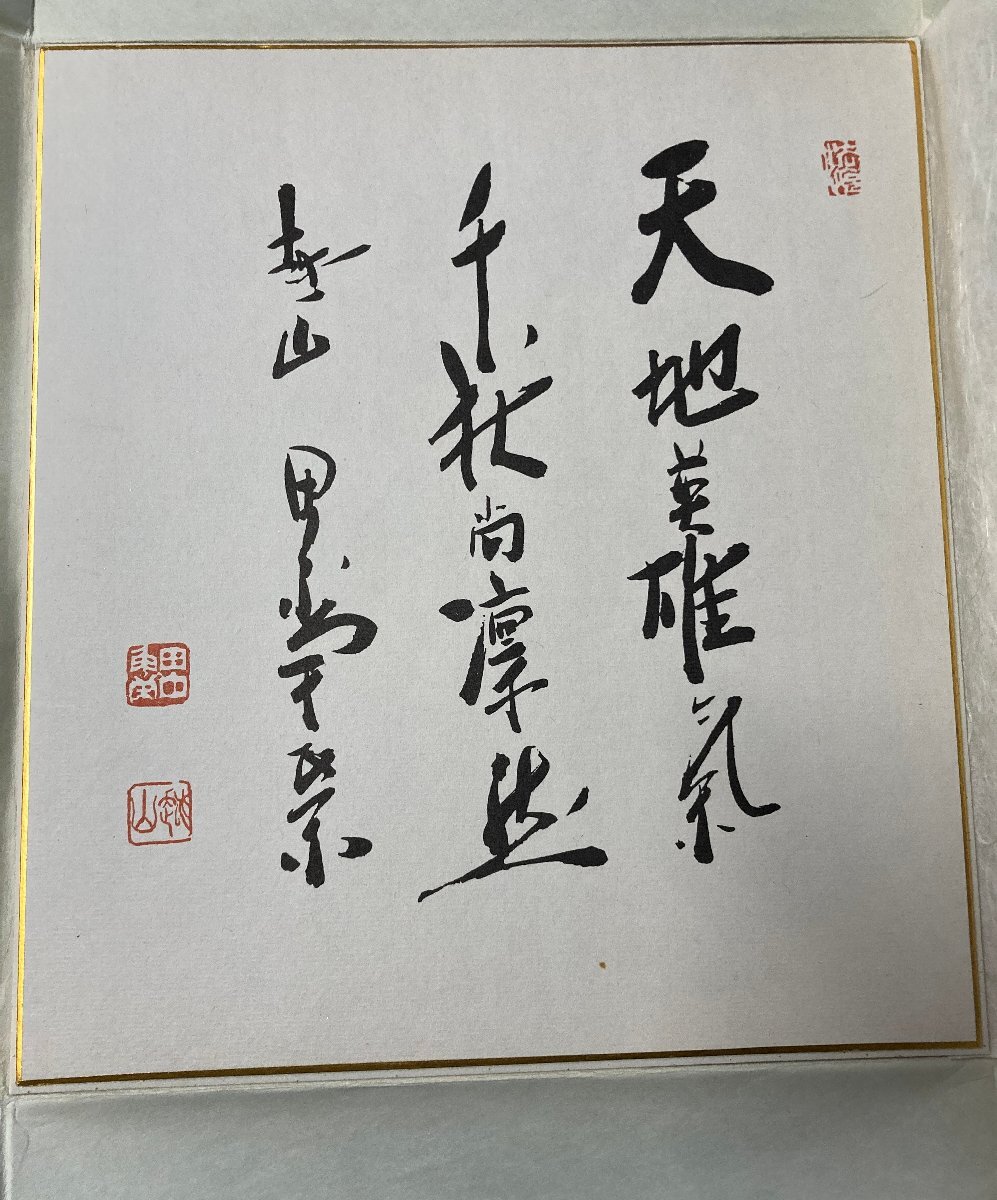 天地英雄氣
千秋尚凛然
越山 田中角榮
田中角榮
越山